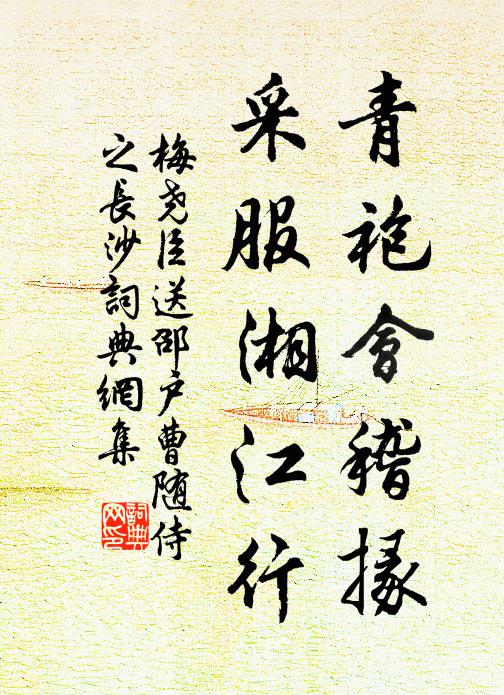 青袍會稽掾
采服湘江行
梅尧臣送邵户曹随侍
之長沙詞典網集
詞典
网印